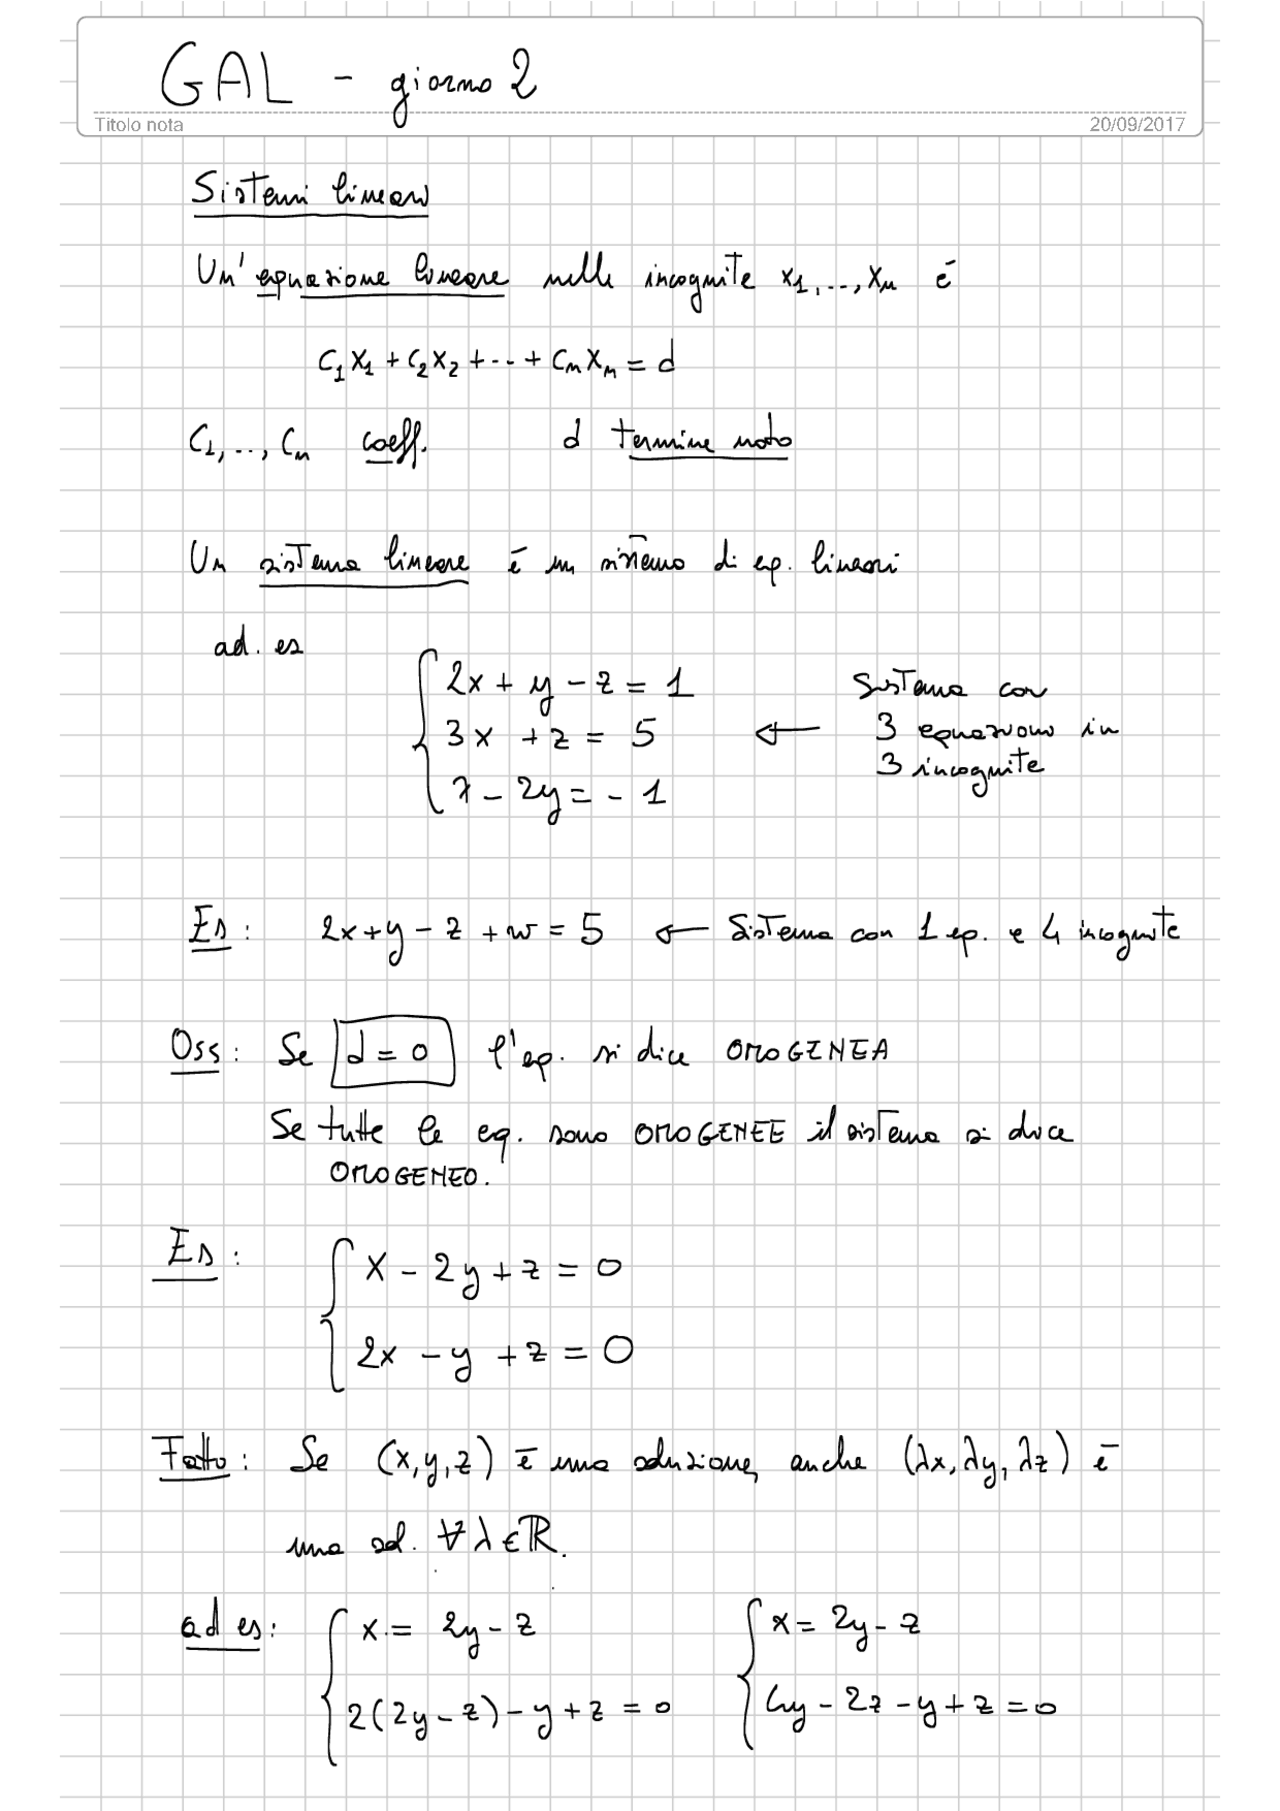 GAL - giorno 2
Titolo nota 20/09/2017
Sistemi lineari
Un' equazione lineare nelle incognite x₁, .., xₙ è
c₁x₁ + c₂x₂ + ... + cₙxₙ = d
c₁, .., cₙ coeff. d termine noto
Un sistema lineare è un sistema di eq. lineari
ad. es
2x + y - z = 1
3x + z = 5
x - 2y = - 1
← Sistema con
3 equazioni in
3 incognite
Es: 2x + y - z + w = 5 ← Sistema con 1 eq. e 4 incognite
Oss: Se d = 0 l'eq. si dice OMOGENEA
Se tutte le eq. sono OMOGENEE il sistema si dice
OMOGENEO.
Es:
x - 2y + z = 0
2x - y + z = 0
Fatto: Se (x, y, z) è una soluzione, anche (λx, λy, λz) è
una sol. ∀ λ ∈ ℝ.
ad es: x = 2y - z x = 2y - z
2(2y - z) - y + z = 0 4y - 2z - y + z = 0